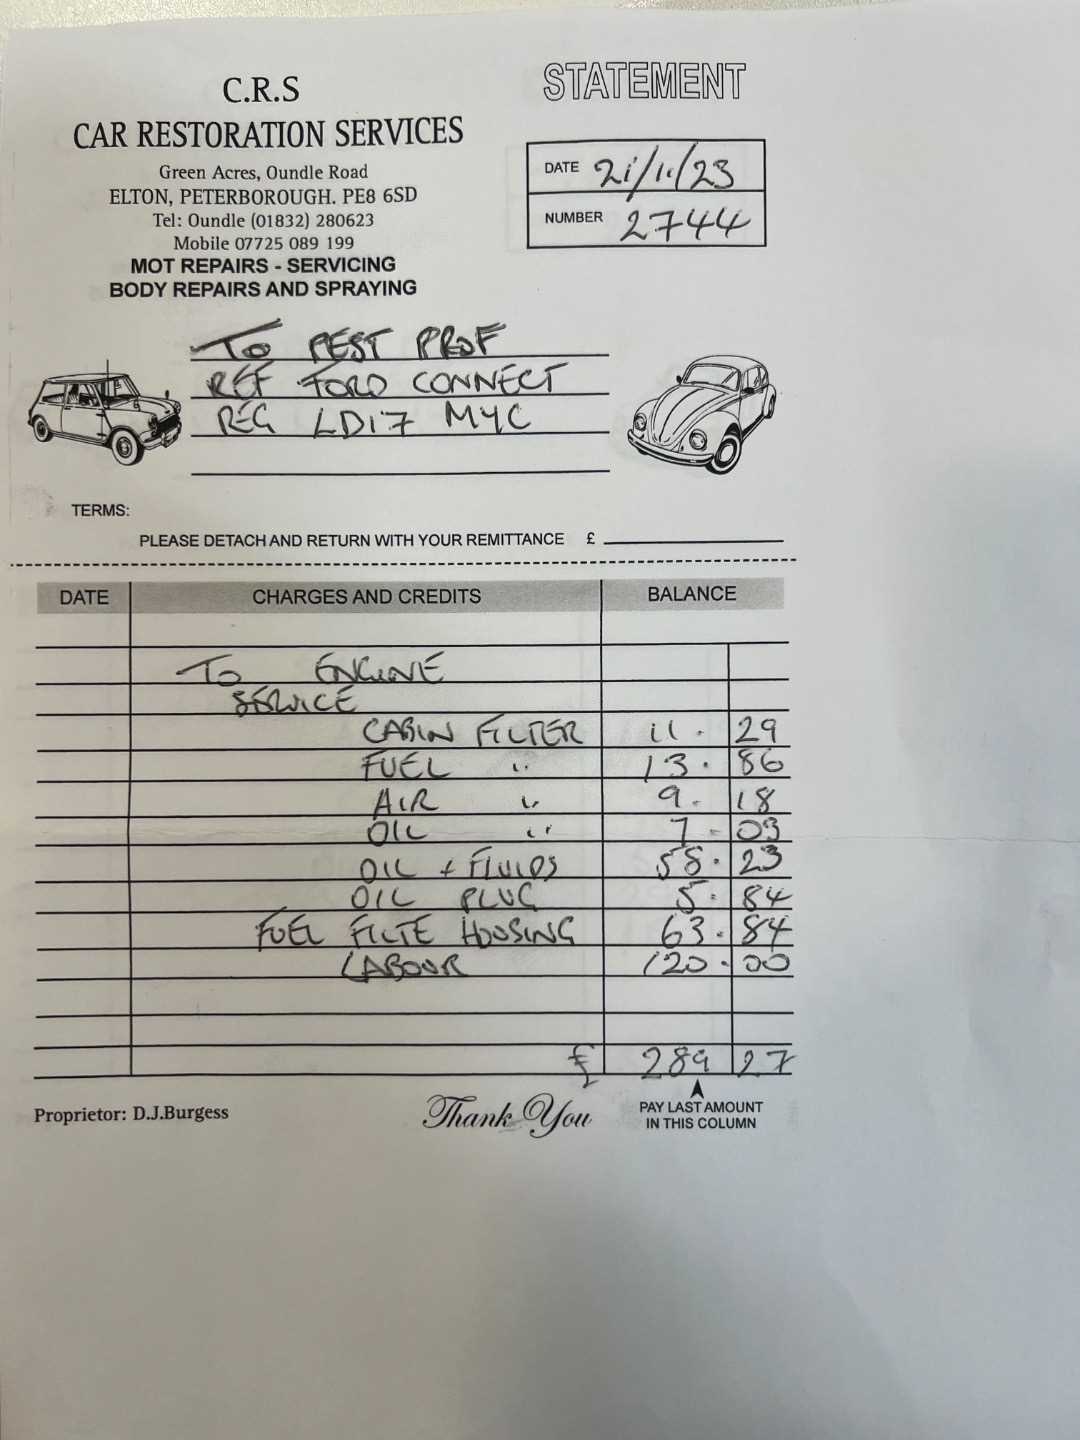 C.R.S
CAR RESTORATION SERVICES
Green Acres, Oundle Road
ELTON, PETERBOROUGH. PE8 6SD
Tel: Oundle (01832) 280623
Mobile 07725 089 199
MOT REPAIRS - SERVICING
BODY REPAIRS AND SPRAYING
STATEMENT
DATE 21/11/23
NUMBER 2744
TO PEST PROF
REF FORD CONNECT
REG LD17 MYC
TERMS:
PLEASE DETACH AND RETURN WITH YOUR REMITTANCE £
DATE CHARGES AND CREDITS BALANCE
TO ENGINE
SERVICE
CABIN FILTER 11. 29
FUEL " 13. 86
AIR " 9. 18
OIL " 7. 03
OIL + FLUIDS 58. 23
OIL PLUG 5. 84
FUEL FILTE HOUSING 63. 84
LABOUR 120. 00
£ 289 27
Proprietor: D.J.Burgess
Thank You
PAY LAST AMOUNT
IN THIS COLUMN